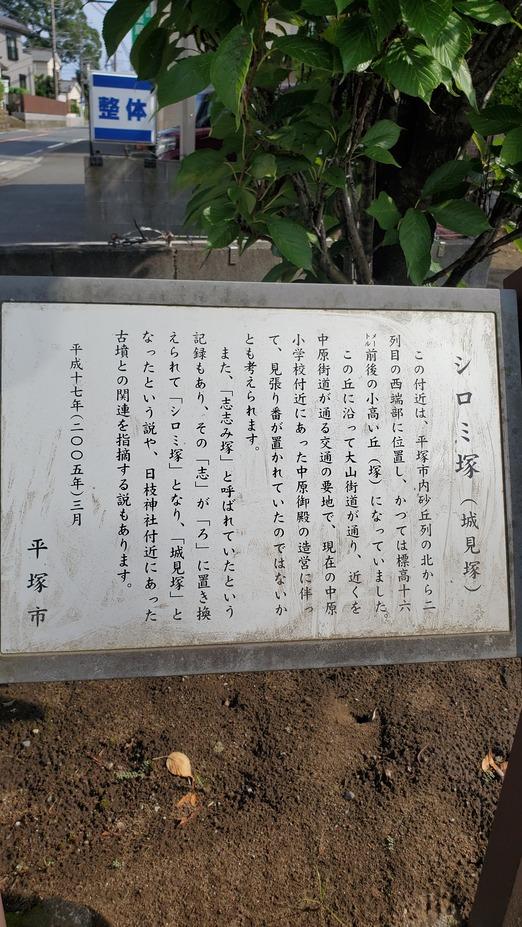 整体
シロミ塚（城見塚）
この付近は、平塚市内砂丘列の北から二
列目の西端部に位置し、かつては標高十六
メートル前後の小高い丘（塚）になっていました。
この丘に沿って大山街道が通り、近くを
中原街道が通る交通の要地で、現在の中原
小学校付近にあった中原御殿の造営に伴っ
て、見張り番が置かれていたのではないか
とも考えられます。
また、「志志み塚」と呼ばれていたという
記録もあり、その「志」が「ろ」に置き換
えられて「シロミ塚」となり、「城見塚」と
なったという説や、日枝神社付近にあった
古墳との関連を指摘する説もあります。
平成十七年（二〇〇五年）三月
平塚市